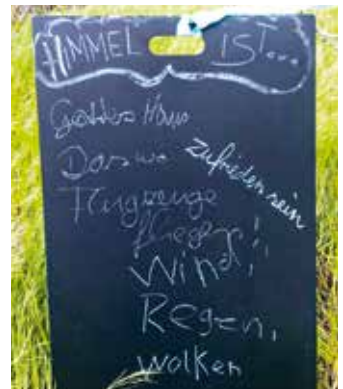 HIMMEL IST...
Gottes Haus
Das wo
zufrieden sein
Flugzeuge
fliegen!
Wind,
Regen,
Wolken